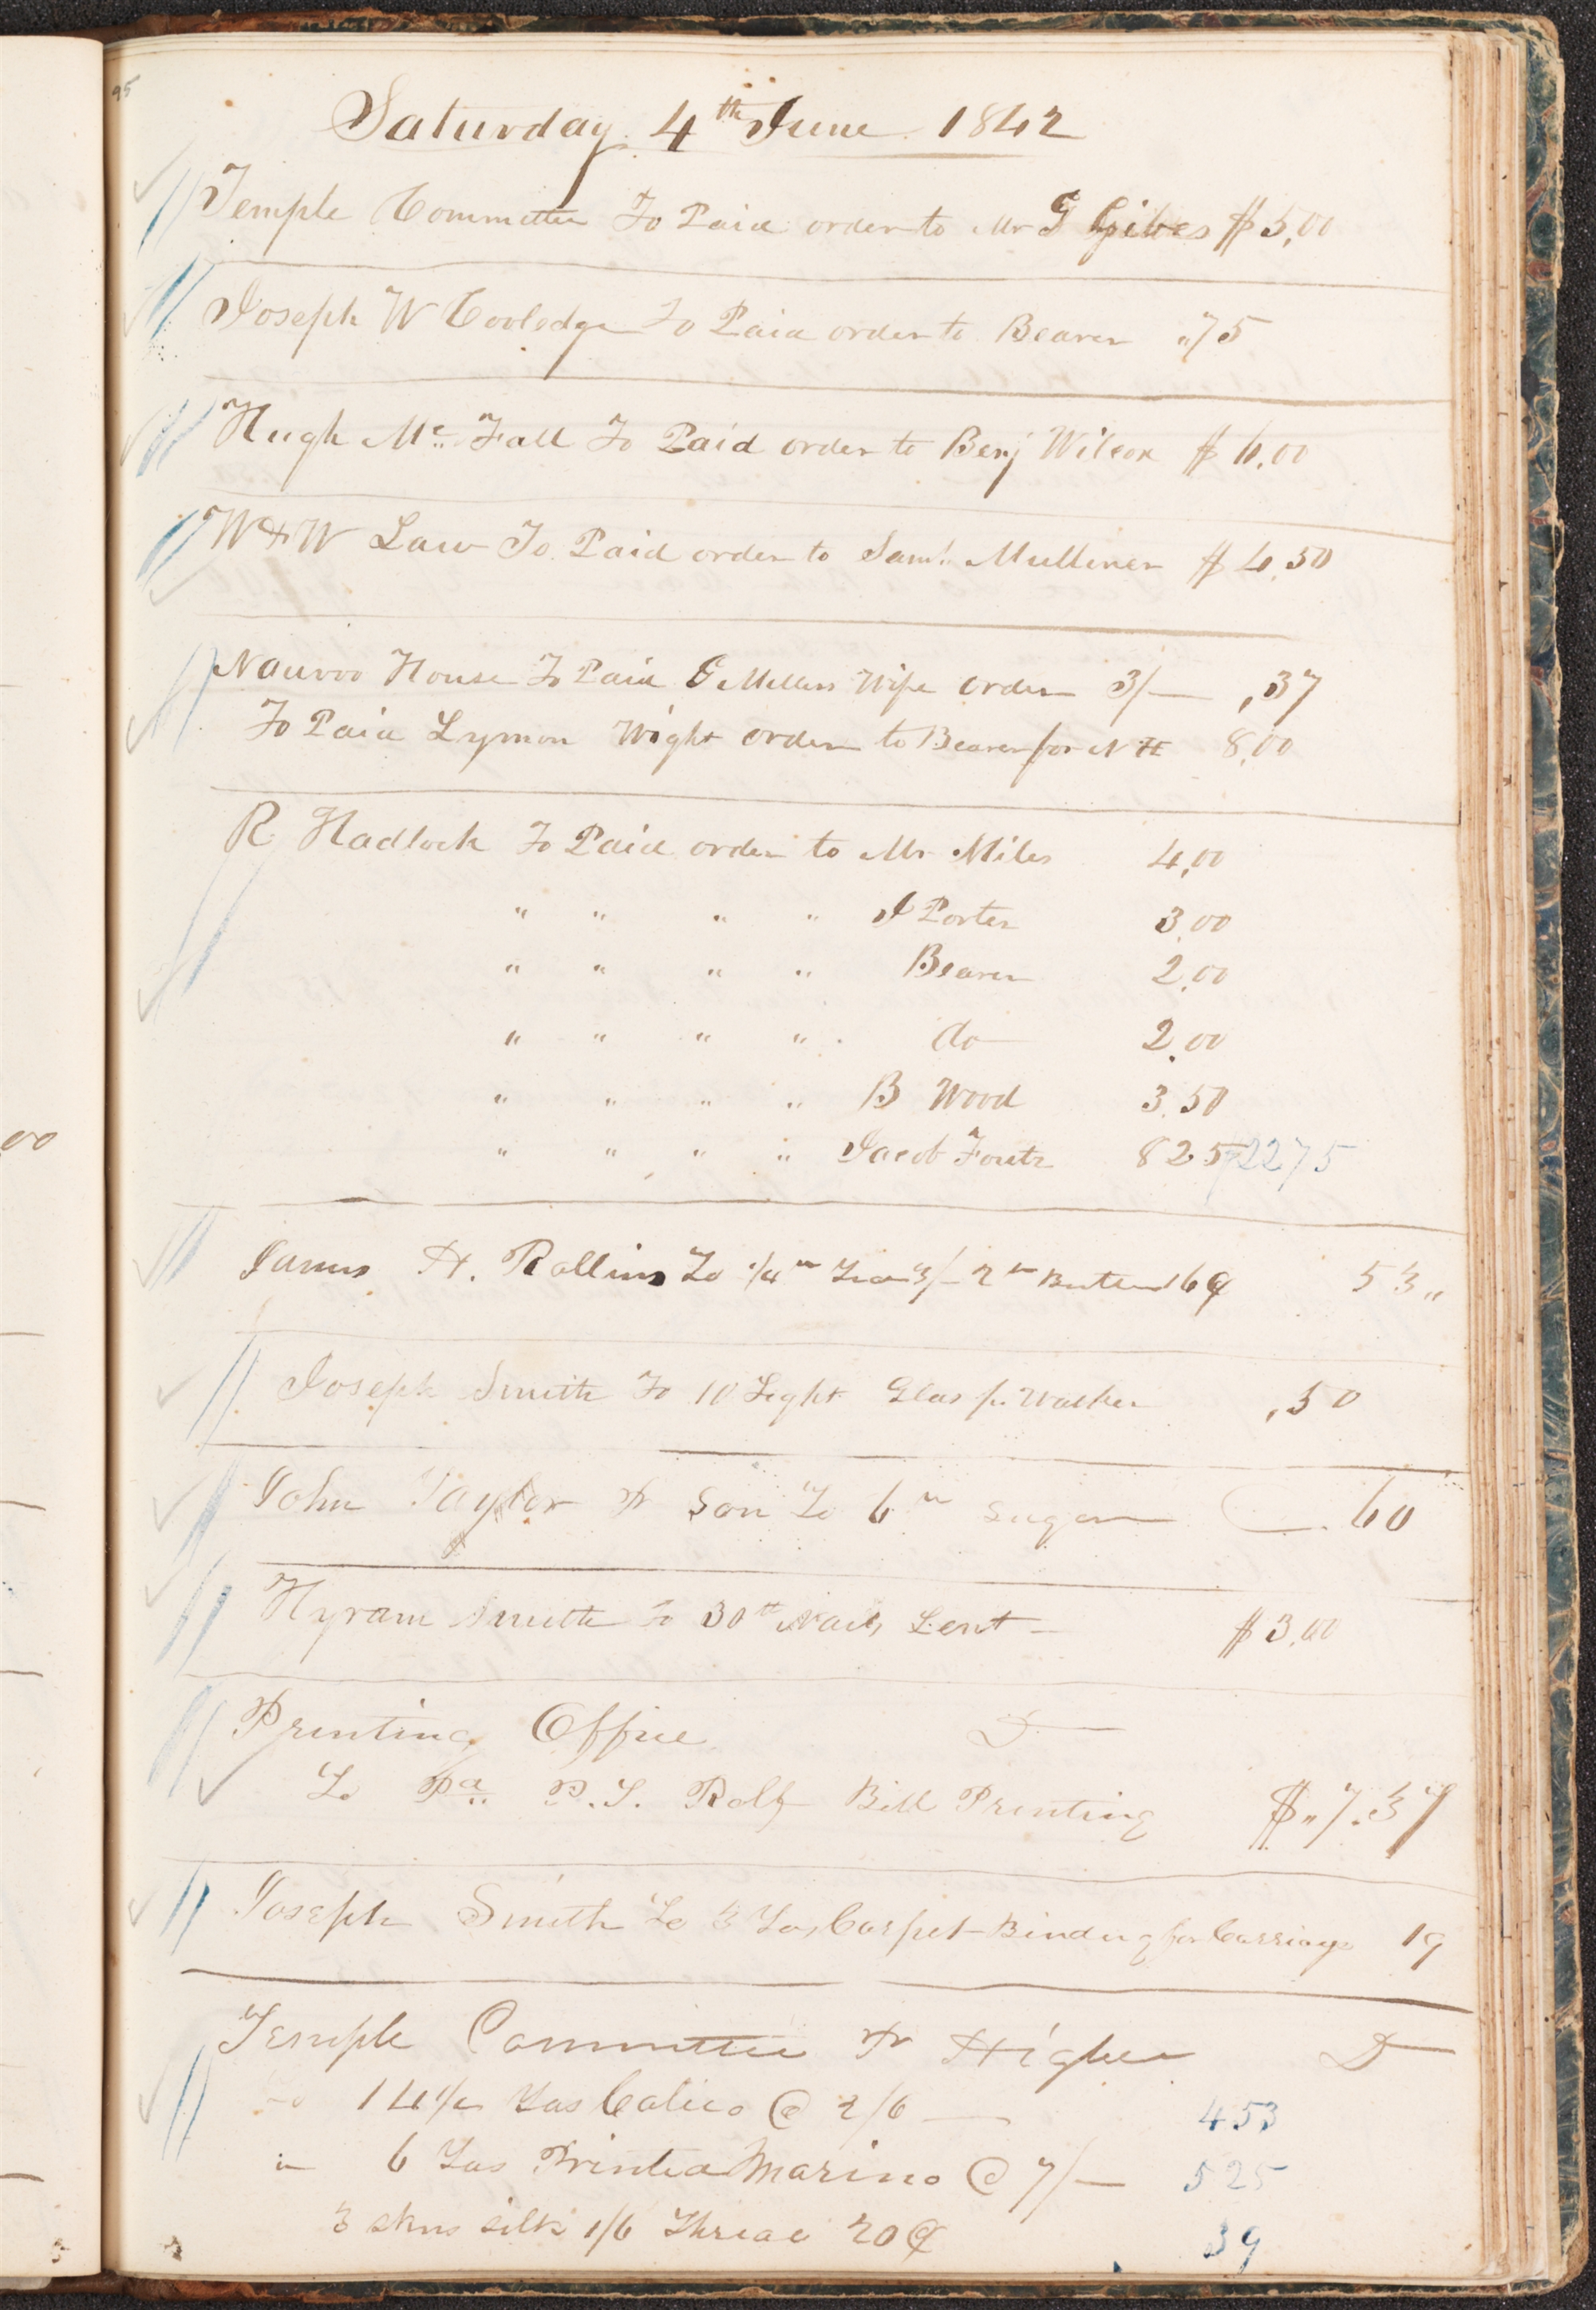 95
Saturday 4th June 1842
Temple Committee To Paid order to Mr G Gibes $5,00
Joseph W Coolodge To Paid order to Bearer "75
Hugh Mc Fall To Paid order to Benj Wilcox $6.00
W & W Law To Paid order to Saml. Mullener $4.50
Nauvoo House To Paid G Millers Wife order 3/— ,37
To Paid Lymon Wight order to Bearer for N H 8,00
R Hadlock To Paid order to Mr Miles 4,00
" " " " J Porter 3.00
" " " " Bearer 2.00
" " " " do 2.00
" " " " B Wood 3.50
" " " " Jacob Foutz 825 2275
James H. Rollins To 1/4 Tea 3/– 2 Butter 16¢ 53"
Joseph Smith To 10 Light Glas pr Walker ,50
John Taylor & Son To 6 Sugar 60
Hyram Smith To 30 tt Nails Lent — $3.00
Printing Office D—
To Pd P.S. Rolf Bill Printing $"7.37
Joseph Smith To 3 Yds Carpet Binding for Carriage 19
Temple Committee Pr Higbee D—
14 1/2 Yds Calico @ 2/6 — 453
" 6 Yds Printed Marino @ 7/— 525
3 skns silk 1/6 Thread 20¢ 39
00